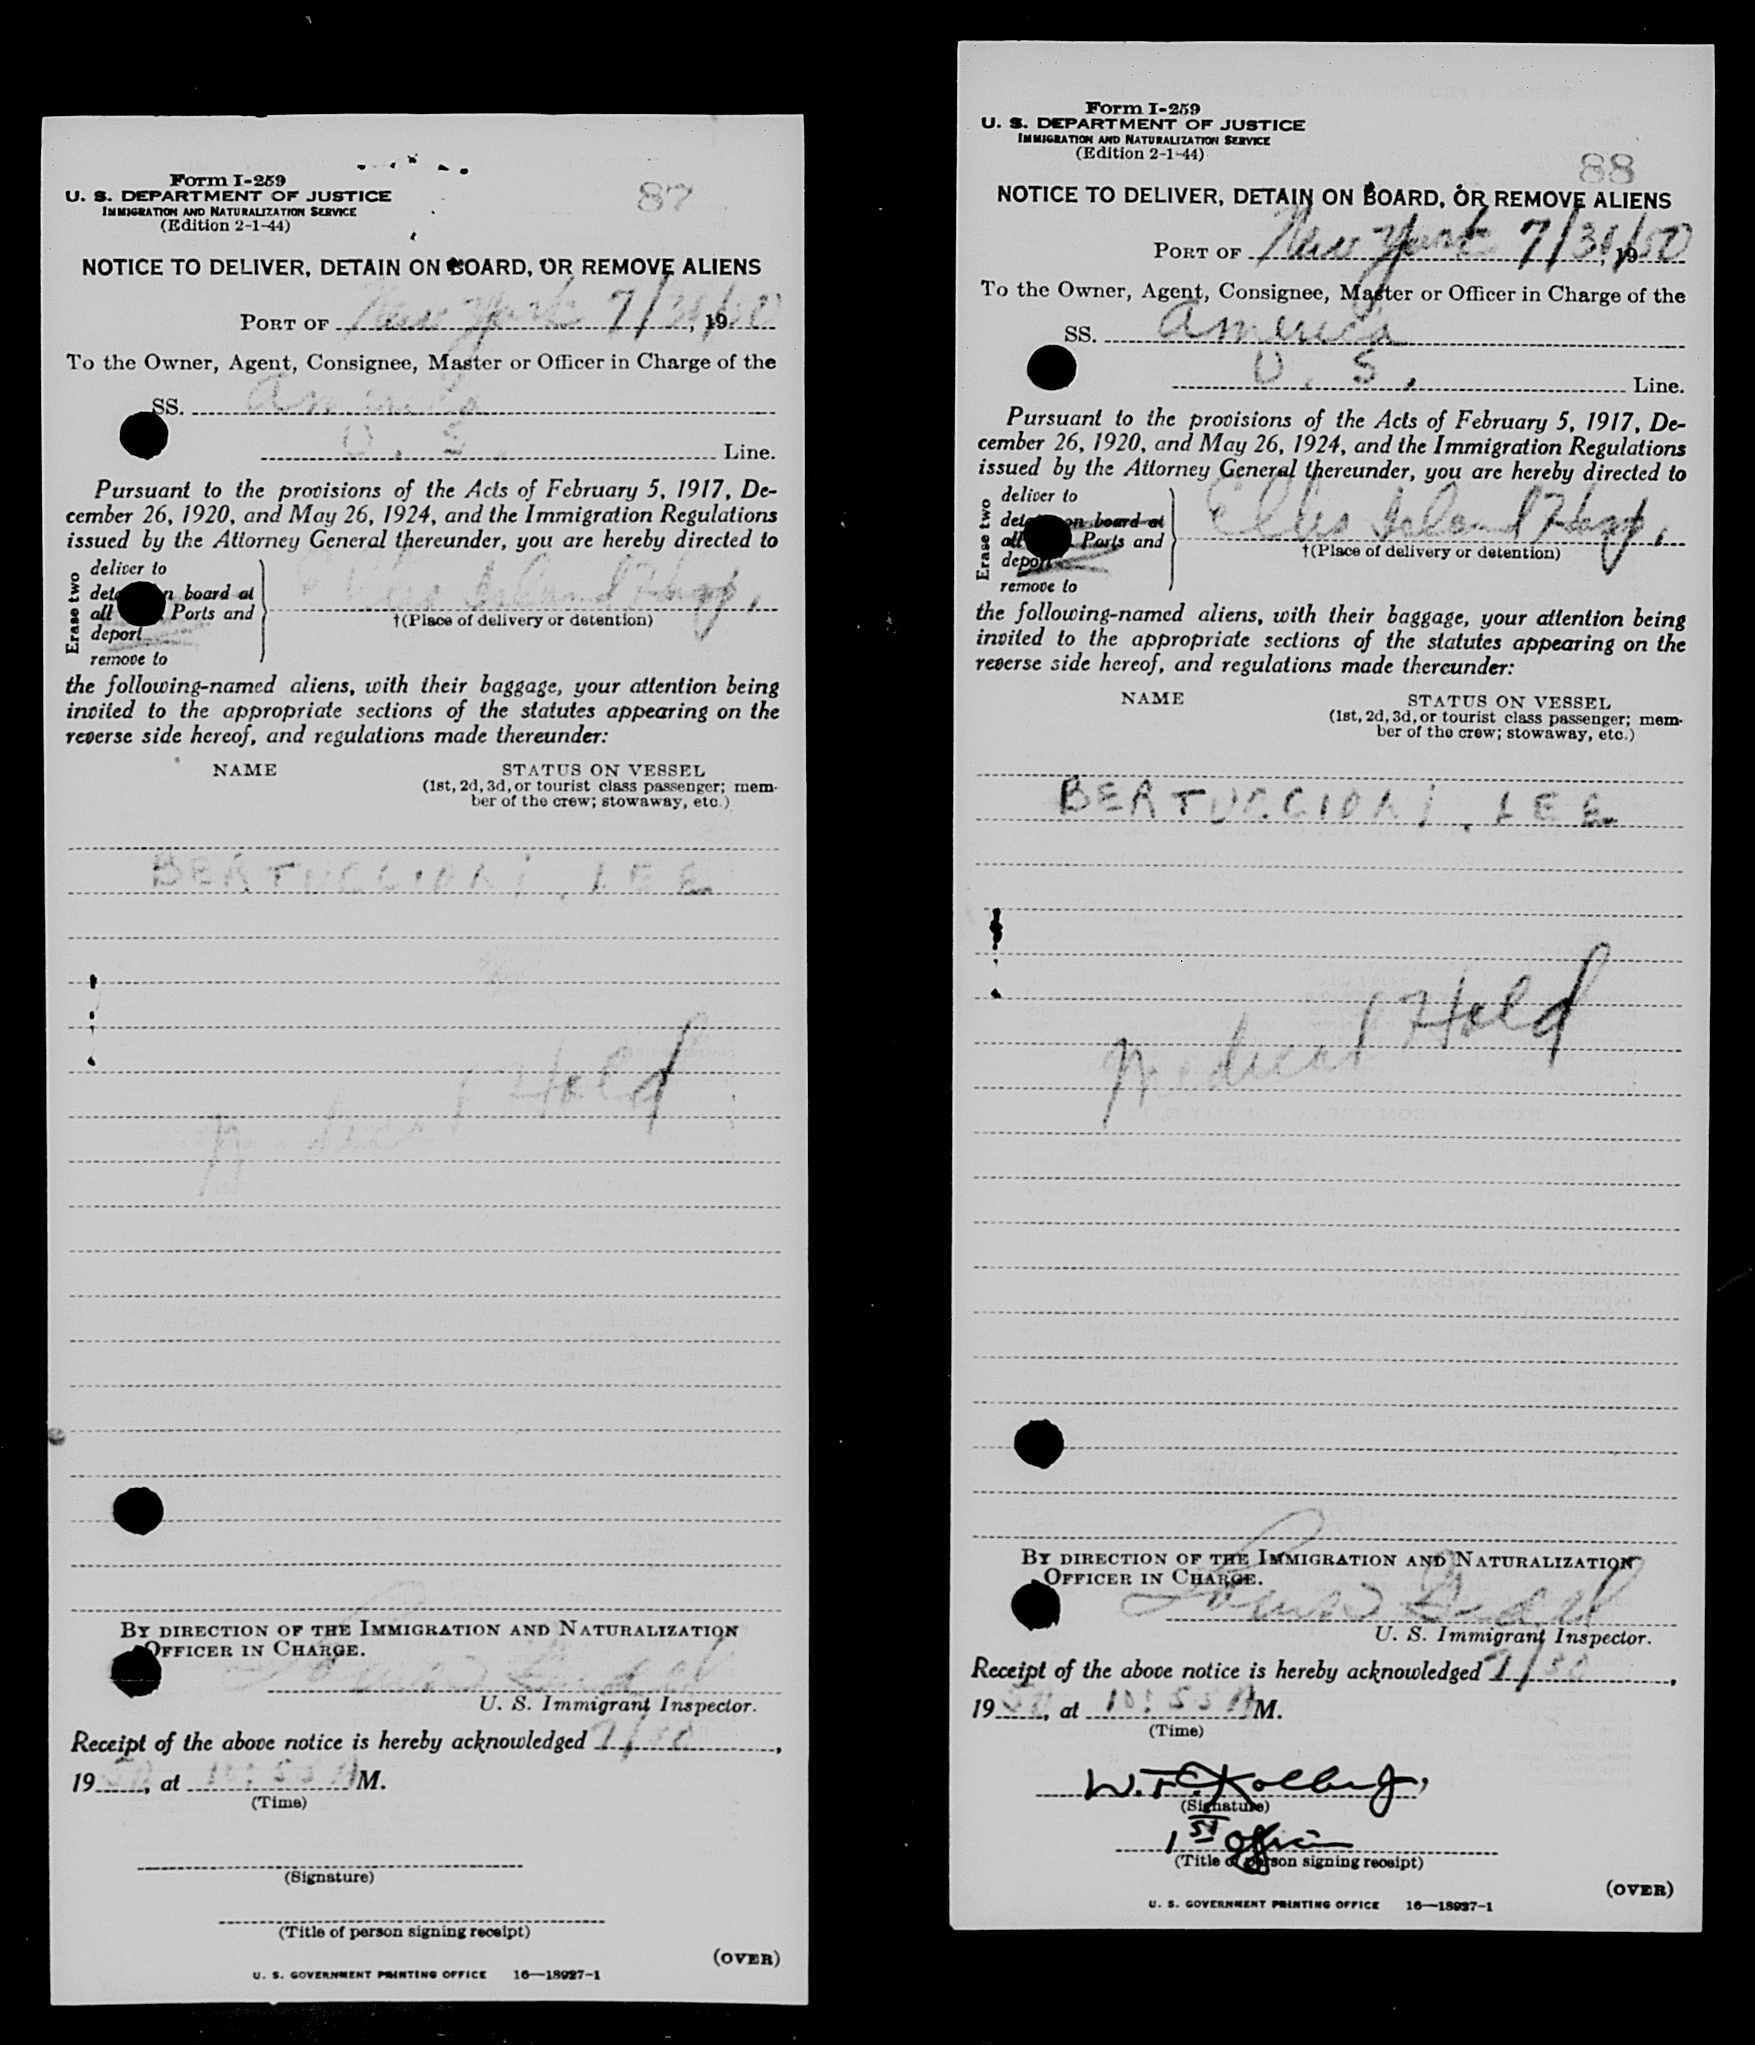 Form I-259
U. S. DEPARTMENT OF JUSTICE
IMMIGRATION AND NATURALIZATION SERVICE
(Edition 2-1-44)
87
NOTICE TO DELIVER, DETAIN ON BOARD, OR REMOVE ALIENS
PORT OF New York 7/30/50, 19
To the Owner, Agent, Consignee, Master or Officer in Charge of the
SS. America
U. S. Line.
Pursuant to the provisions of the Acts of February 5, 1917, De-
cember 26, 1920, and May 26, 1924, and the Immigration Regulations
issued by the Attorney General thereunder, you are hereby directed to
Erase two
deliver to
board at
all Ports and
deport
remove to
Ellis Island Hosp.
†(Place of delivery or detention)
the following-named aliens, with their baggage, your attention being
invited to the appropriate sections of the statutes appearing on the
reverse side hereof, and regulations made thereunder:
NAME STATUS ON VESSEL
(1st, 2d, 3d, or tourist class passenger; mem-
ber of the crew; stowaway, etc.)
BERTUCCIONI, LEE
Medical Hold
BY DIRECTION OF THE IMMIGRATION AND NATURALIZATION
OFFICER IN CHARGE.
U. S. Immigrant Inspector.
Receipt of the above notice is hereby acknowledged 7/30,
1950, at 10:55 A M.
(Time)
(Signature)
(Title of person signing receipt)
(OVER)
U. S. GOVERNMENT PRINTING OFFICE 16—18927-1
Form I-259
U. S. DEPARTMENT OF JUSTICE
IMMIGRATION AND NATURALIZATION SERVICE
(Edition 2-1-44)
88
NOTICE TO DELIVER, DETAIN ON BOARD, OR REMOVE ALIENS
PORT OF New York 7/30/50, 19
To the Owner, Agent, Consignee, Master or Officer in Charge of the
SS. America
U. S. Line.
Pursuant to the provisions of the Acts of February 5, 1917, De-
cember 26, 1920, and May 26, 1924, and the Immigration Regulations
issued by the Attorney General thereunder, you are hereby directed to
Erase two
deliver to
on board at
all Ports and
deport
remove to
Ellis Island Hosp.
†(Place of delivery or detention)
the following-named aliens, with their baggage, your attention being
invited to the appropriate sections of the statutes appearing on the
reverse side hereof, and regulations made thereunder:
NAME STATUS ON VESSEL
(1st, 2d, 3d, or tourist class passenger; mem-
ber of the crew; stowaway, etc.)
BERTUCCIONI, LEE
Medical Hold
BY DIRECTION OF THE IMMIGRATION AND NATURALIZATION
OFFICER IN CHARGE.
U. S. Immigrant Inspector.
Receipt of the above notice is hereby acknowledged 7/30,
1950, at 10:55 A M.
(Time)
W. F.
(Signature)
1st Officer
(Title of person signing receipt)
(OVER)
U. S. GOVERNMENT PRINTING OFFICE 16—18927-1